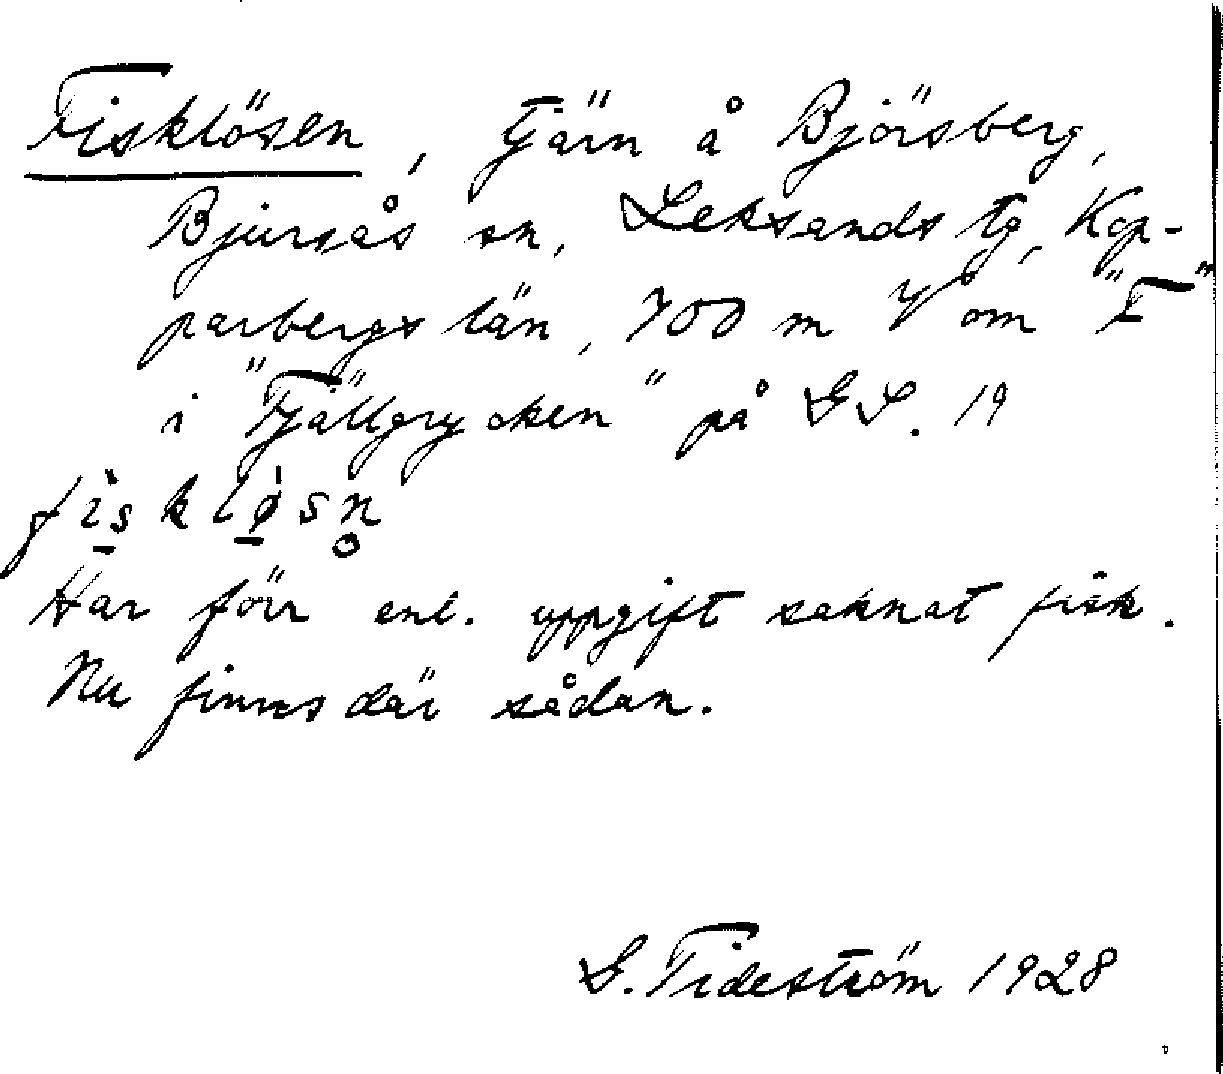 Fisklösen, tjärn å Björsberg,
Bjursås sn, Leksands tg, Kop-
parbergs län, 700 m V om "F"
i "Fjällgrycken" på GS. 19
fisklø̀sn̥
Har förr enl. uppgift saknat fisk.
Nu finns där sådan.
G. Tideström 1928